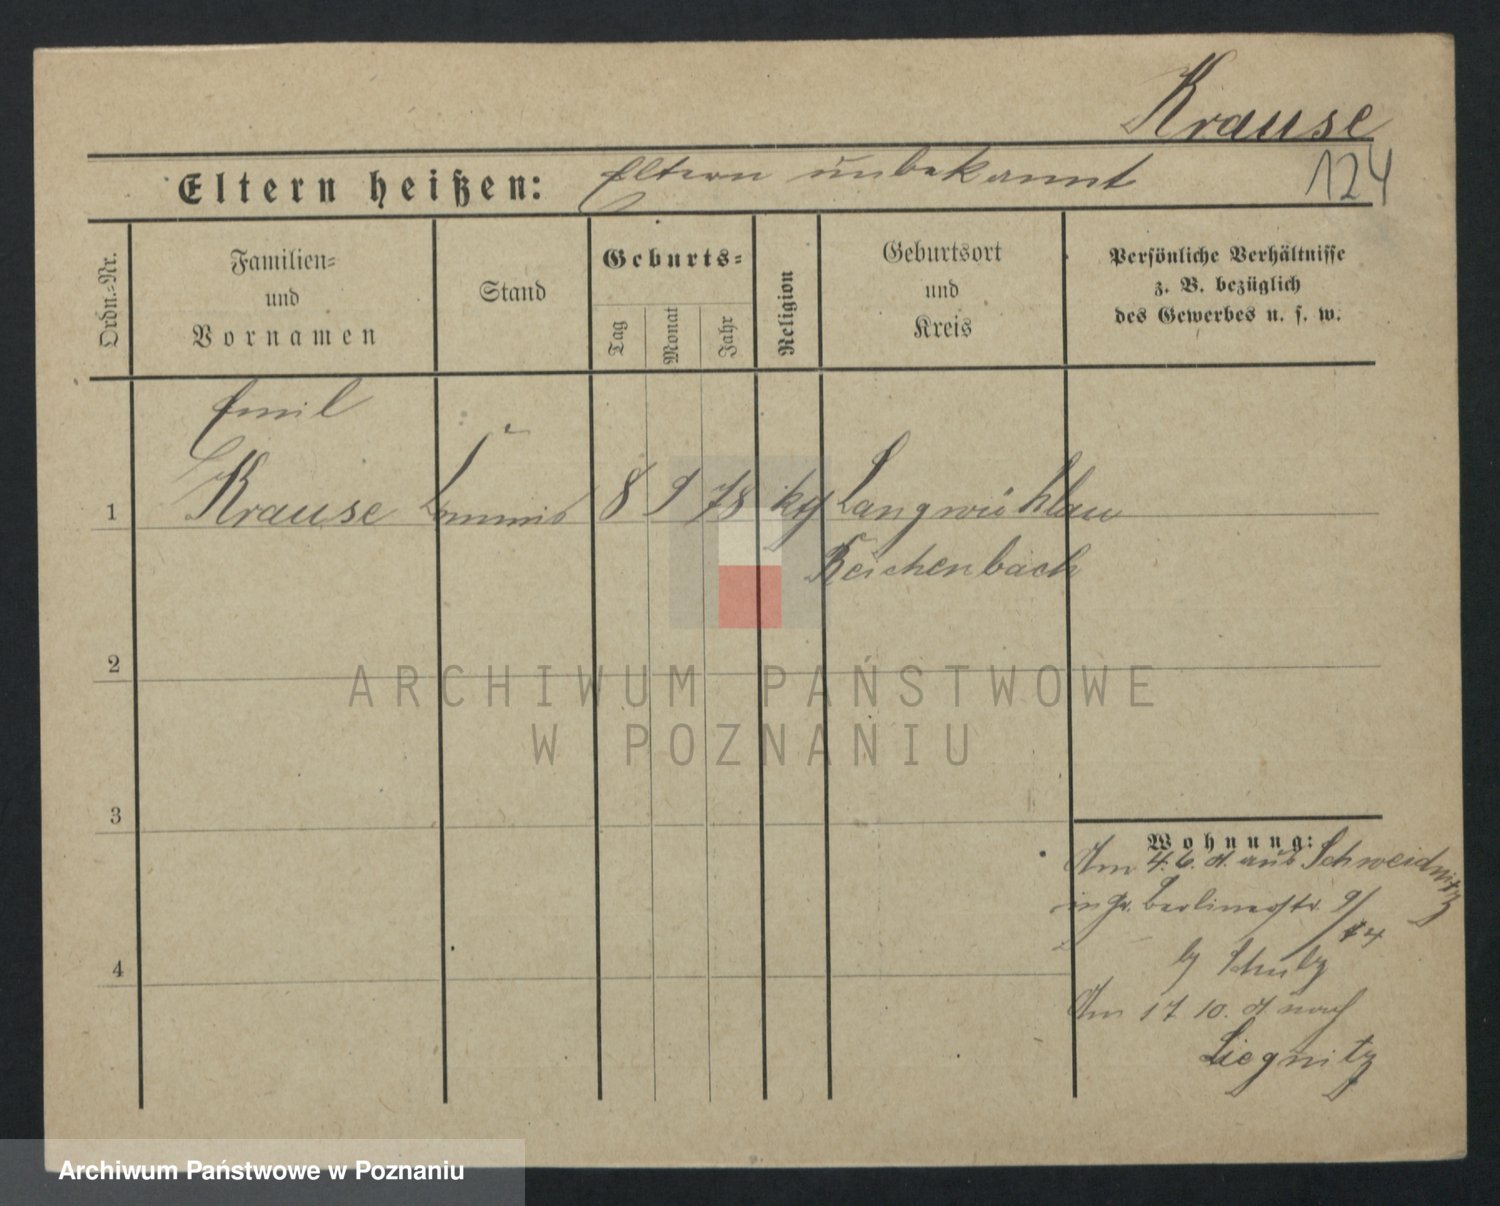 Krause
124
Eltern heißen: Eltern unbekannt
Ordn.-Nr.
Familien-
und
Vornamen
Stand
Geburts-
Tag
Monat
Jahr
Religion
Geburtsort
und
Kreis
Persönliche Verhältnisse
z. B. bezüglich
des Gewerbes u. s. w.
Emil
1 Krause Commis 8 9 78 kth
Reichenbach
2
3
4
Wohnung:
Am 4. 6. d. aus Schweidnitz
in Gr. Berlinerstr. 9/
by Schulz
Am 17 10. d. nach
Liegnitz
ARCHIWUM PAŃSTWOWE
W POZNANIU
Archiwum Państwowe w Poznaniu